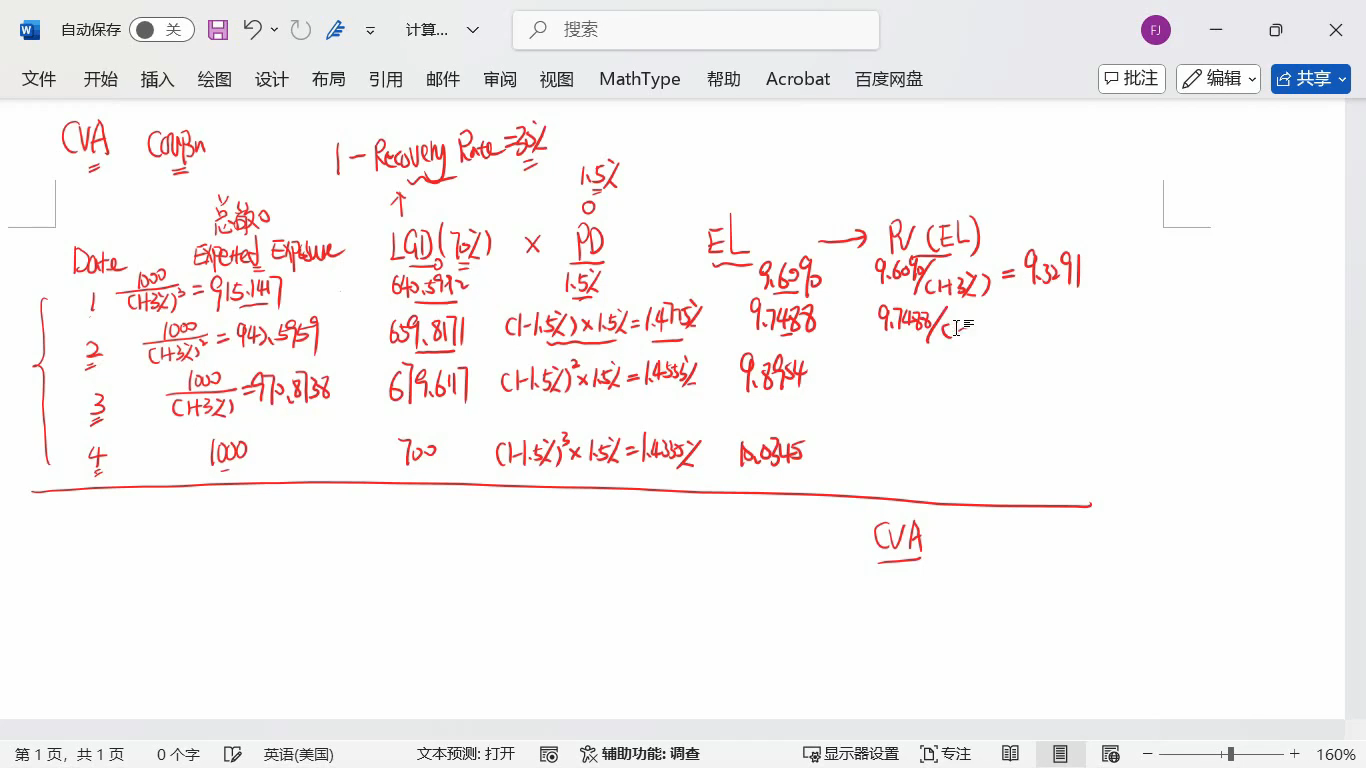 自动保存 关 计算... 搜索 FJ
文件 开始 插入 绘图 设计 布局 引用 邮件 审阅 视图 MathType 帮助 Acrobat 百度网盘 批注 编辑 共享
CVA Coupon 1 - Recovery Rate = 30%
↑ 1.5%
总敞口 0
Date Expected Exposure LGD (70%) × PD EL → PV (EL)
1 1000/(1+3%)³ = 915.1417 640.5992 1.5% 9.6090 9.6090/(1+3%) = 9.3291
2 1000/(1+3%)² = 942.5959 659.8171 (1-1.5%) × 1.5% = 1.4775% 9.7488 9.7488/(
3 1000/(1+3%) = 970.8738 679.6117 (1-1.5%)² × 1.5% = 1.4553% 9.8954
4 1000 700 (1-1.5%)³ × 1.5% = 1.4335% 10.0345
CVA
第 1 页，共 1 页 0 个字 英语(美国) 文本预测: 打开 辅助功能: 调查 显示器设置 专注 160%